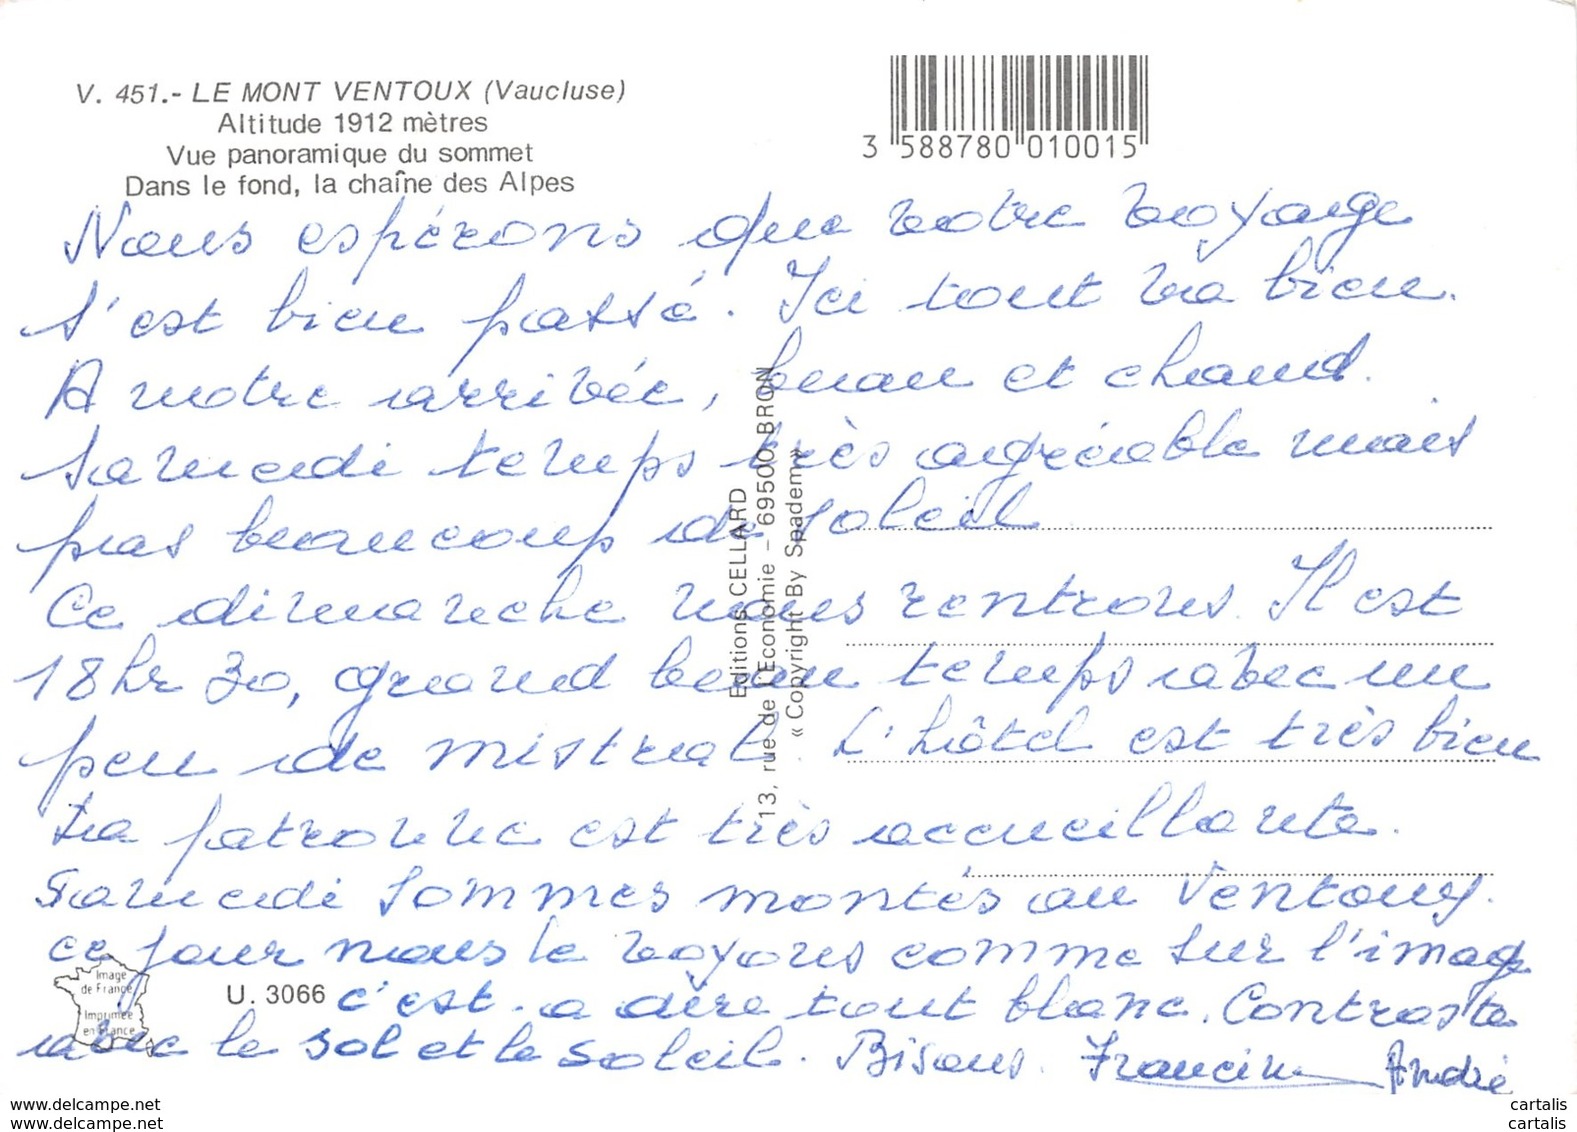 V. 451.- LE MONT VENTOUX (Vaucluse)
Altitude 1912 mètres
Vue panoramique du sommet
Dans le fond, la chaîne des Alpes
3 588780 010015
Nous espérons que votre voyage
s'est bien passé. Ici tout va bien.
A notre arrivée, beau et chaud.
Samedi temps très agréable mais
pas beaucoup de soleil
Ce dimanche nous rentrons. Il est
18 hr 30, grand beau temps avec un
peu de mistral. L'hôtel est très bien
La patronne est très accueillante.
Samedi sommes montés au Ventoux.
ce jour nous le voyons comme sur l'image
c'est-a dire tout blanc. Contraste
avec le sol et le soleil. Bisous. Francine André
Editions CELLARD
13, rue de l'Economie - 69500 BRON
« Copyright By Spadem »
Image
de France
Imprimée
en France
U. 3066
www.delcampe.net
www.delcampe.net
cartalis
cartalis